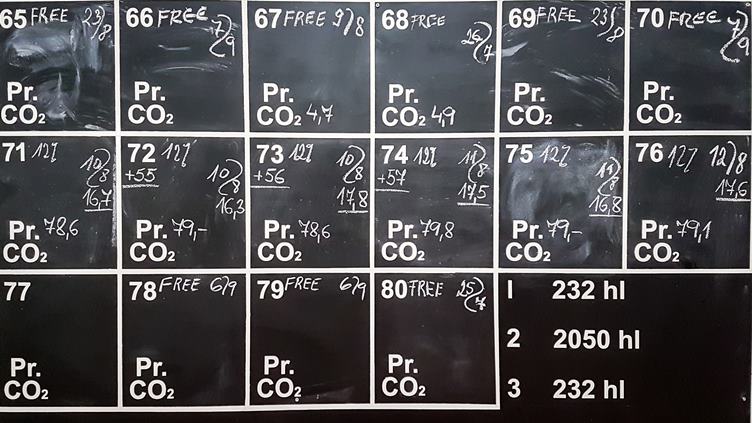 65 FREE 23/8
Pr.
CO2
66 FREE 7/9
Pr.
CO2
67 FREE 9/8
Pr.
CO2 4,7
68 FREE 26/7
Pr.
CO2 4,9
69 FREE 23/8
Pr.
CO2
70 FREE 7/9
Pr.
CO2
71 12% 10/8
16,7
Pr. 78,6
CO2
72 12%
+55 10/8
16,3
Pr. 79,-
CO2
73 12% 10/8
+56
17,8
Pr. 78,6
CO2
74 12% 11/8
+57
17,5
Pr. 79,8
CO2
75 12% 11/8
16,8
Pr. 79,-
CO2
76 12% 12/8
17,6
Pr. 79,1
CO2
77
Pr.
CO2
78 FREE 6/9
Pr.
CO2
79 FREE 6/9
Pr.
CO2
80 FREE 25/7
Pr.
CO2
1 232 hl
2 2050 hl
3 232 hl